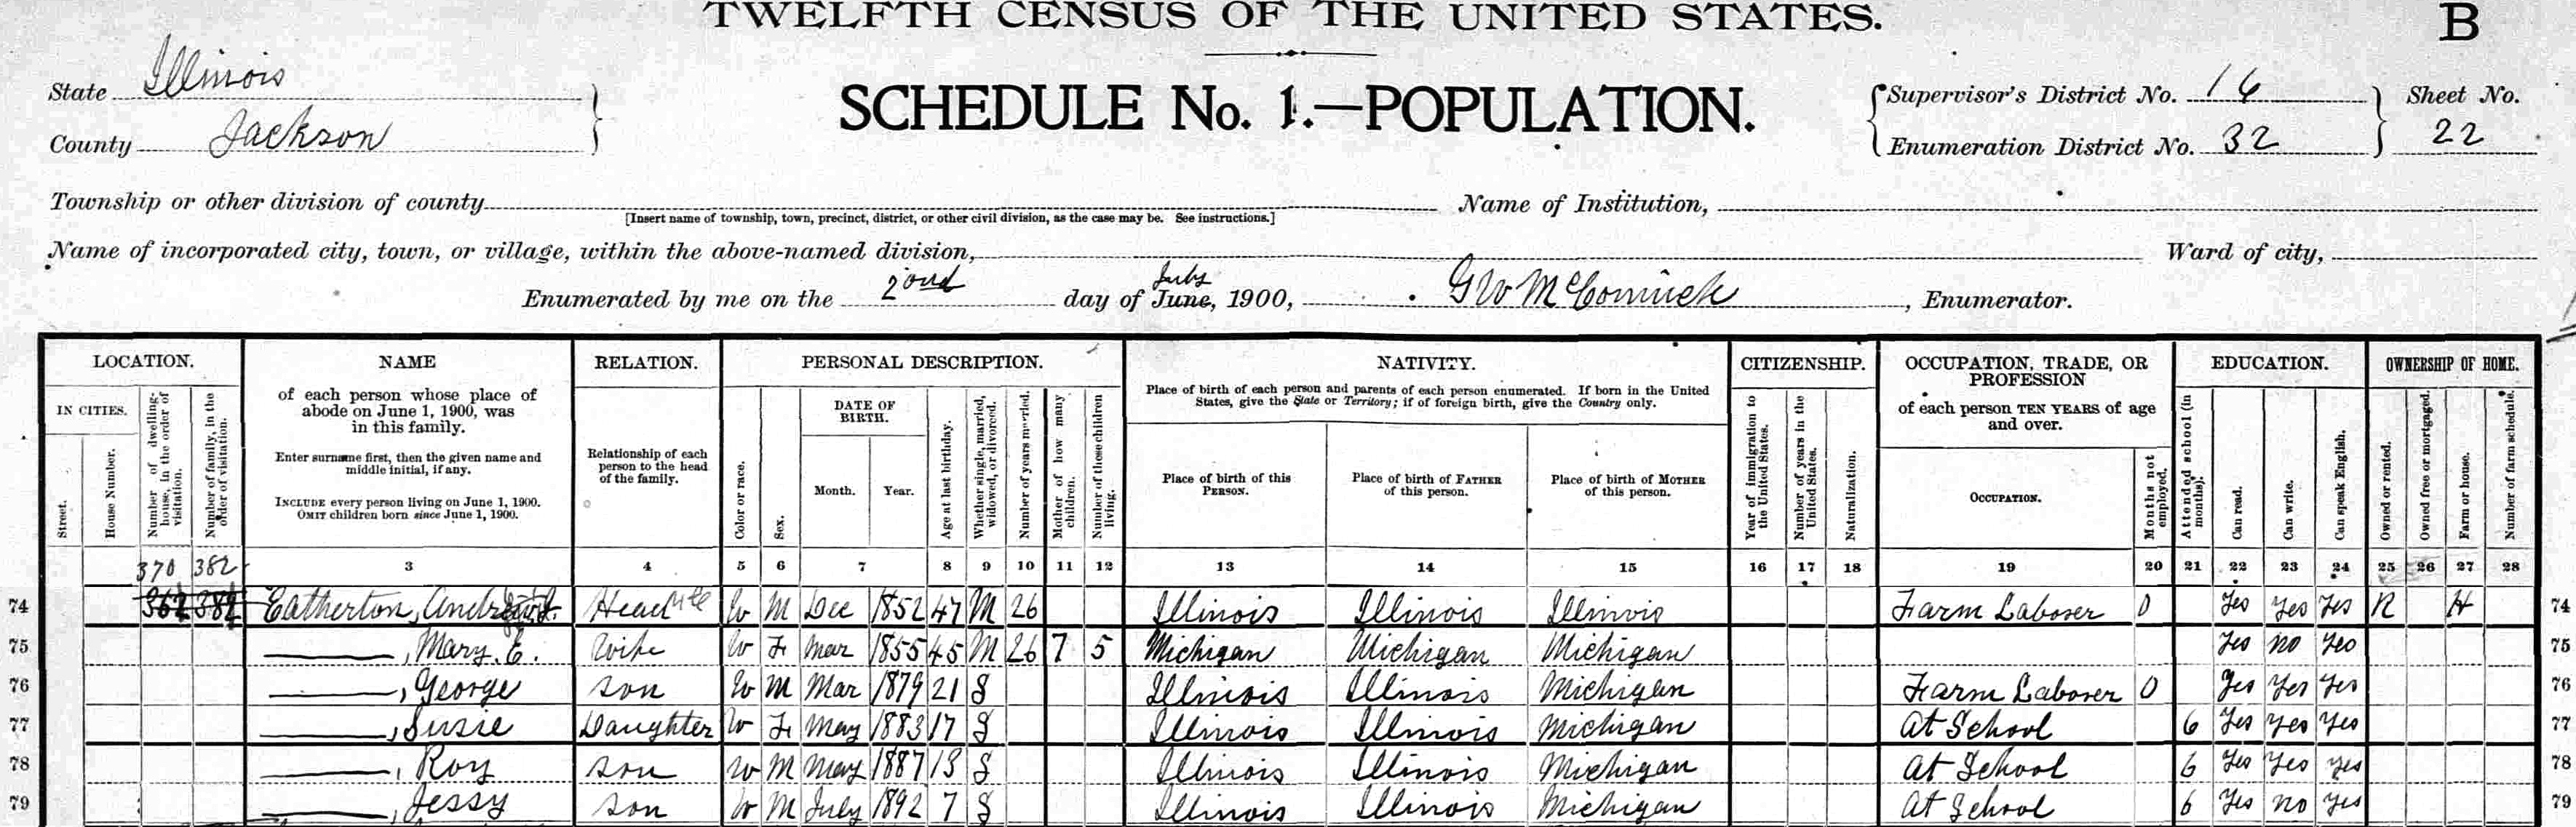 TWELFTH CENSUS OF THE UNITED STATES.
B
State Illinois
County Jackson
SCHEDULE No. 1.—POPULATION.
Supervisor's District No. 16
Enumeration District No. 32
Sheet No.
22
Township or other division of county
[Insert name of township, town, precinct, district, or other civil division, as the case may be. See instructions.]
Name of Institution,
Name of incorporated city, town, or village, within the above-named division,
Ward of city,
July
Enumerated by me on the 2ond day of June, 1900, G W McCormick, Enumerator.
LOCATION.
IN CITIES.
Street.
House Number.
Number of dwelling-house, in the order of visitation.
Number of family, in the order of visitation.
NAME
of each person whose place of abode on June 1, 1900, was in this family.
Enter surname first, then the given name and middle initial, if any.
INCLUDE every person living on June 1, 1900.
OMIT children born since June 1, 1900.
RELATION.
Relationship of each person to the head of the family.
PERSONAL DESCRIPTION.
Color or race.
Sex.
DATE OF BIRTH.
Month.
Year.
Age at last birthday.
Whether single, married, widowed, or divorced.
Number of years married.
Mother of how many children.
Number of these children living.
NATIVITY.
Place of birth of each person and parents of each person enumerated. If born in the United States, give the State or Territory; if of foreign birth, give the Country only.
Place of birth of this PERSON.
Place of birth of FATHER of this person.
Place of birth of MOTHER of this person.
CITIZENSHIP.
Year of immigration to the United States.
Number of years in the United States.
Naturalization.
OCCUPATION, TRADE, OR PROFESSION
of each person TEN YEARS of age and over.
OCCUPATION.
Months not employed.
EDUCATION.
Attended school (in months).
Can read.
Can write.
Can speak English.
OWNERSHIP OF HOME.
Owned or rented.
Owned free or mortgaged.
Farm or house.
Number of farm schedule.
370 382 3 4 5 6 7 8 9 10 11 12 13 14 15 16 17 18 19 20 21 22 23 24 25 26 27 28
74 362 384 Eatherton, Andrew Head W M Dec 1852 47 M 26 Illinois Illinois Illinois Farm Laborer 0 Yes Yes Yes R H 74
75 ——, Mary. E. Wife W F Mar 1855 45 M 26 7 5 Michigan Michigan Michigan Yes no Yes 75
76 ——, George son W M Mar 1879 21 S Illinois Illinois Michigan Farm Laborer 0 Yes Yes Yes 76
77 ——, Susie Daughter W F May 1883 17 S Illinois Illinois Michigan At School 6 Yes Yes Yes 77
78 ——, Roy son W M May 1887 13 S Illinois Illinois Michigan At School 6 Yes Yes Yes 78
79 ——, Jessy son W M July 1892 7 S Illinois Illinois Michigan At School 6 Yes no Yes 79